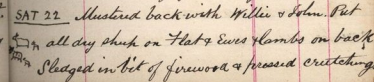 SAT 22 Mustered back with Willie & John. Put
all dry sheep on Flat & Ewes & lambs on back
Sledged in bit of firewood & pressed crutching.